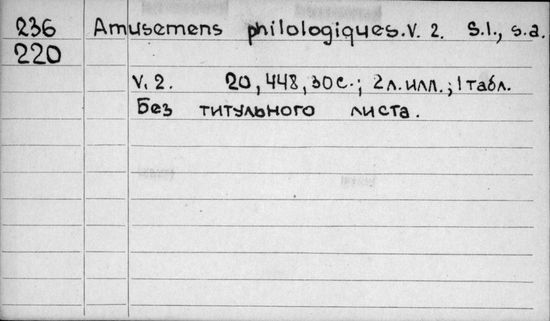 236 Amusemens philologiques. V. 2. S.l., s.a.
220
V. 2. 20, 448, 30 с.; 2 л. илл.; 1 табл.
Без титульного листа.